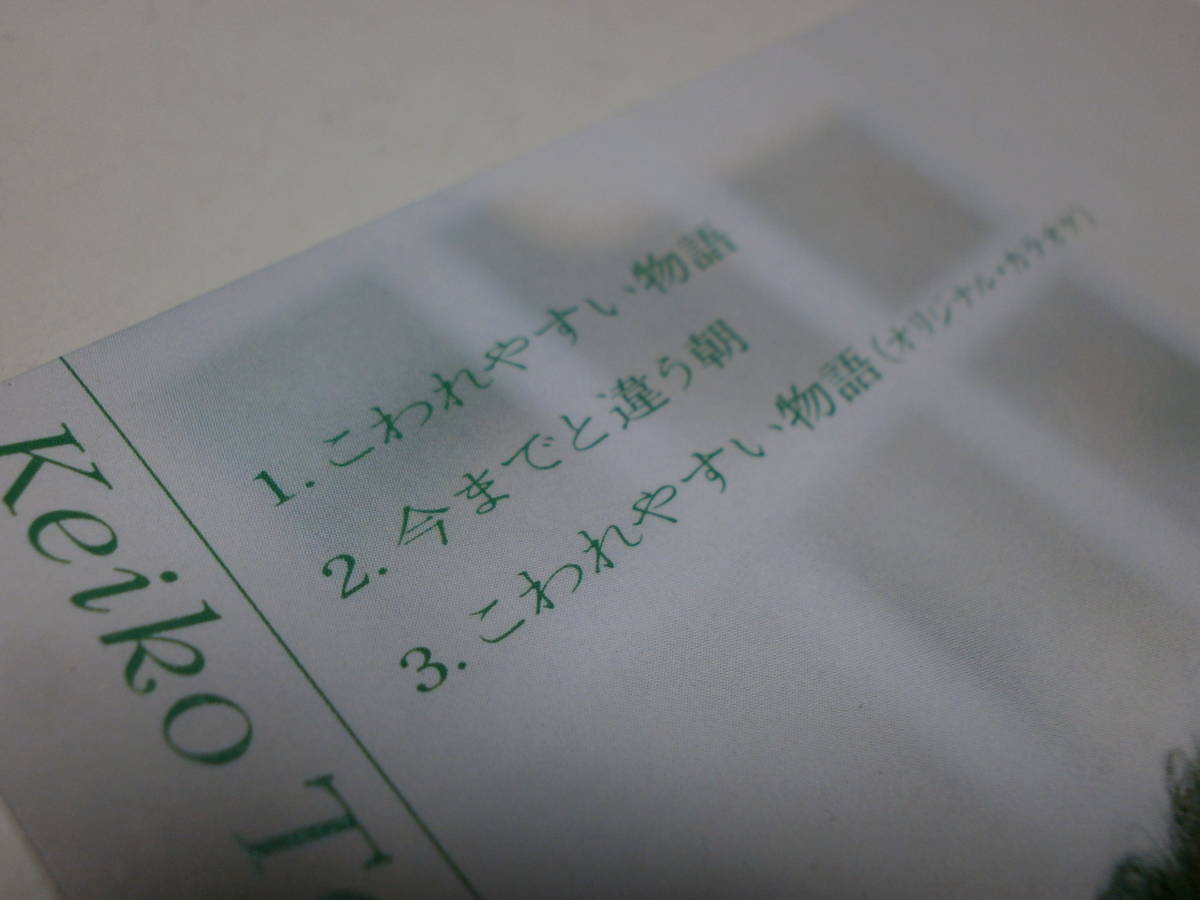 1. こわれやすい物語
2. 今までと違う朝
3. こわれやすい物語(オリジナル・カラオケ)
Keiko T